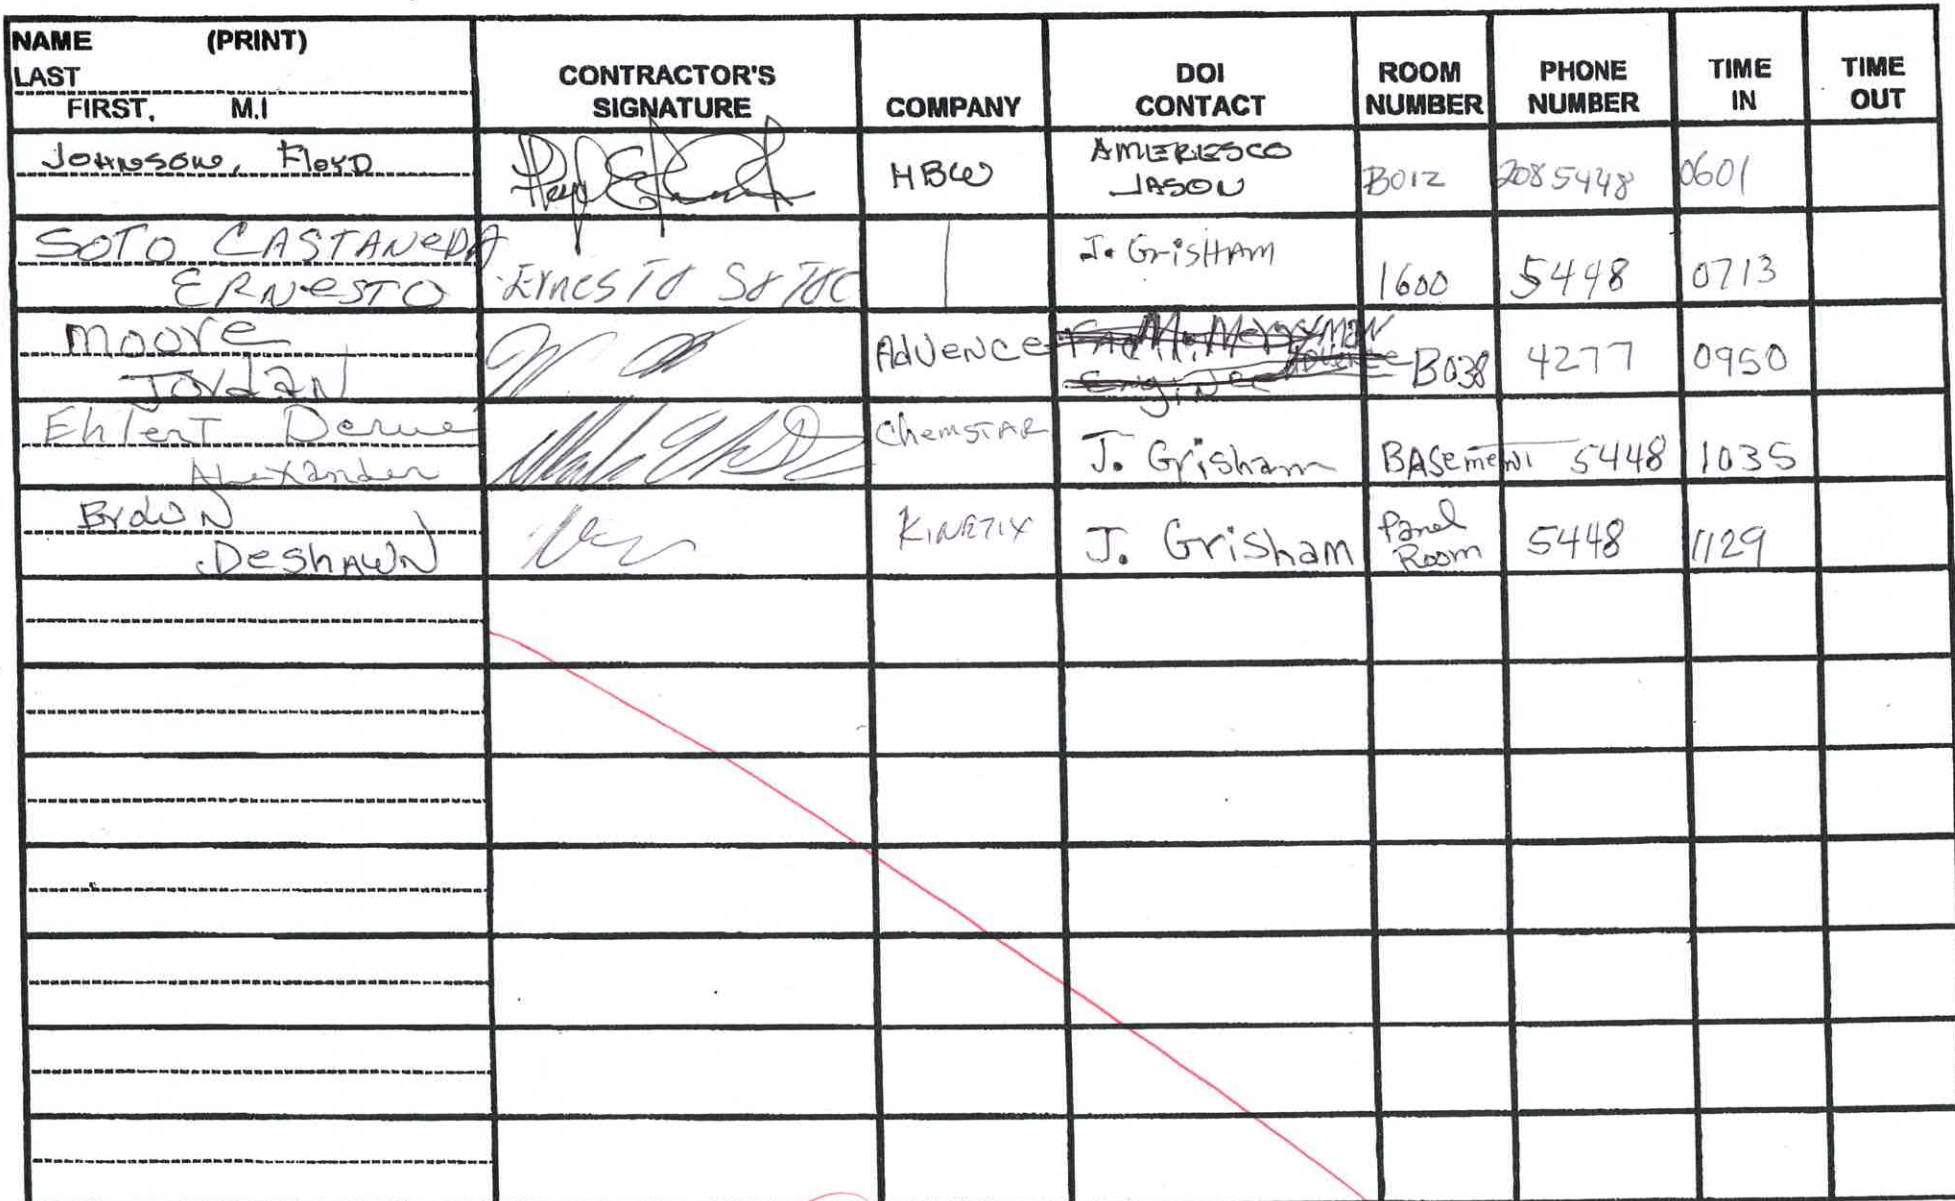 NAME (PRINT)
LAST
FIRST, M.I
CONTRACTOR'S
SIGNATURE
COMPANY
DOI
CONTACT
ROOM
NUMBER
PHONE
NUMBER
TIME
IN
TIME
OUT
JOHNSON, FLOYD
HBW
AMERESCO
JASON
B012
2085448
0601
SOTO CASTANEDA
ERNESTO
J. GrisHAM
1600
5448
0713
Moore
JordaN
AdVence
B038
4277
0950
Ehlert
Alexander
ChemSTAR
J. Grisham
BASement
5448
1035
BroWN
DeshAWN
KINETIX
J. Grisham
Panel
Room
5448
1129